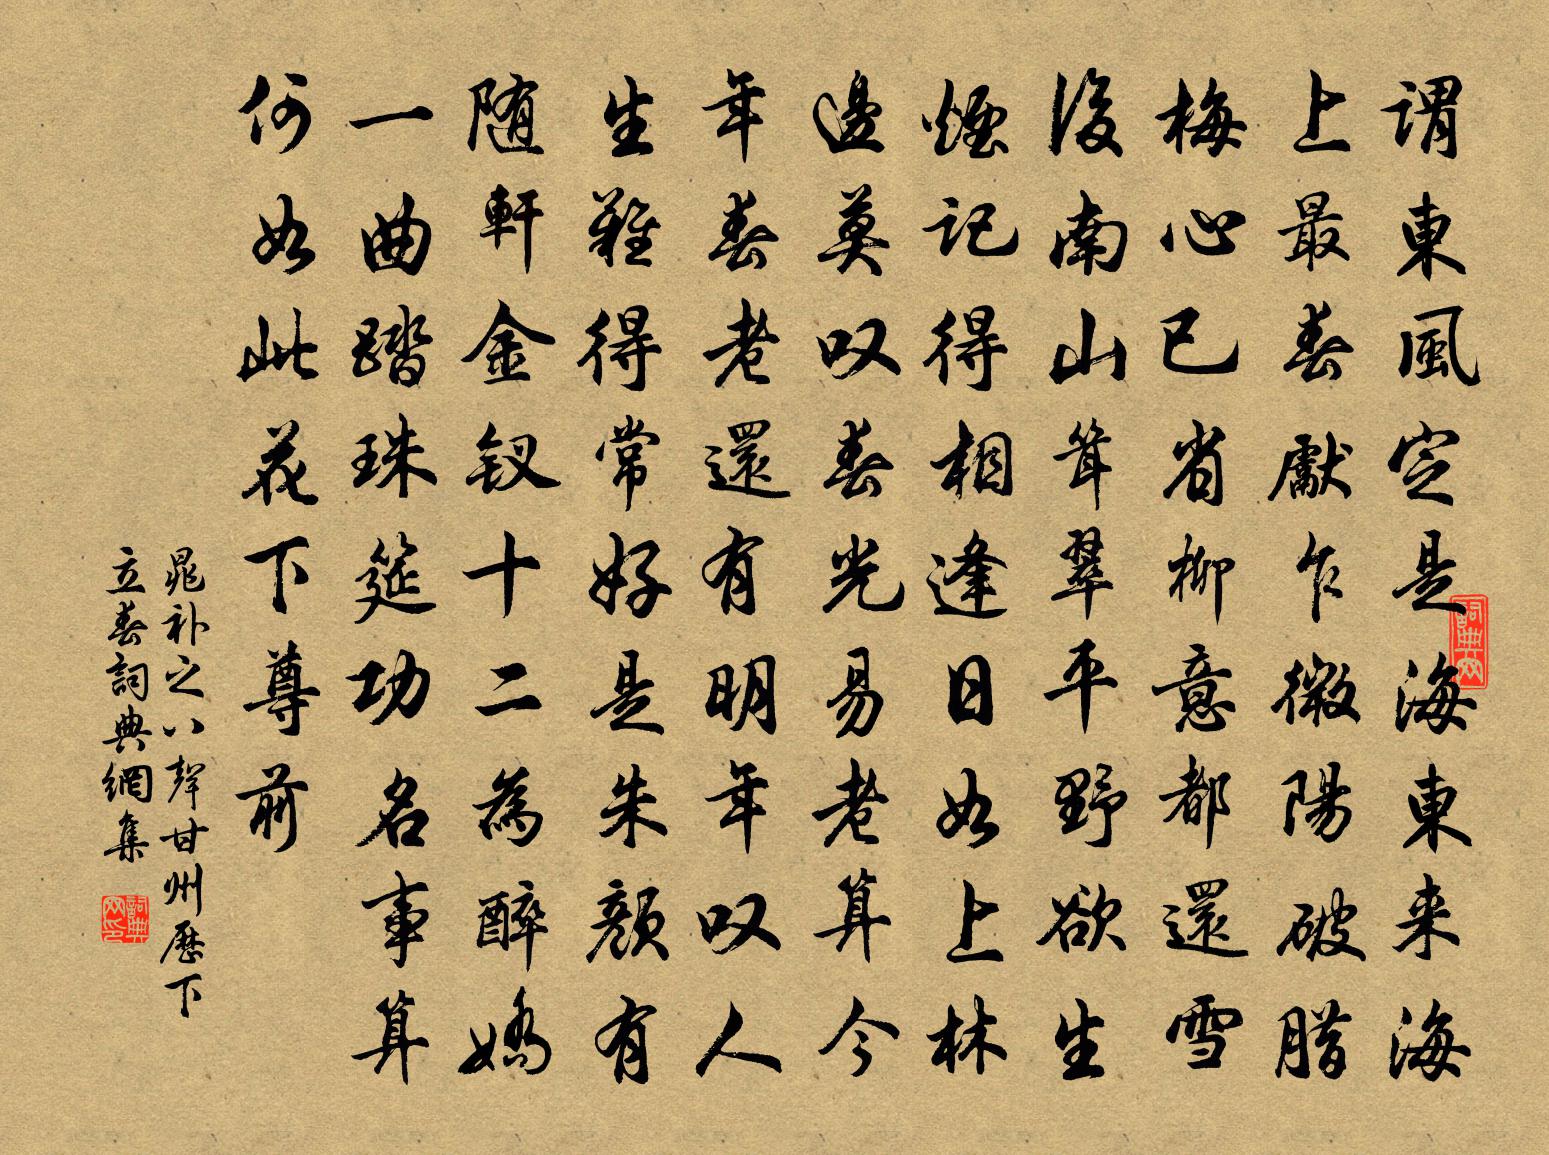 謂東風定是海東来海
上最春獻乍微陽破腊
梅心已省柳意都還雪
後南山耸翠平野欲生
煙記得相逢日如上林
邊莫叹春光易老算今
年春老還有明年叹人
生難得常好是朱顔有
随軒金钗十二為醉嬌
一曲踏珠筵功名事算
何如此花下尊前
晁补之八聲甘州歷下
立春詞典網集
詞典网
詞典网印